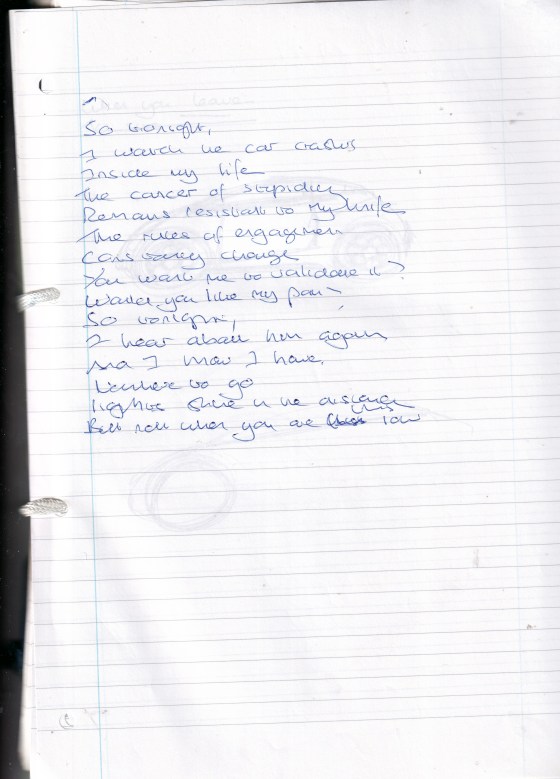 So tonight,
I watch the car crashes
Inside my life
The cancer of stupidity
Remains resistant to my knife
The rules of engagement
Constantly change
You want me to validate it?
Would you like my pain
So tonight,
I hear about him again
And I know I have
Nowhere to go
lights shine in the distance
But not when you are low